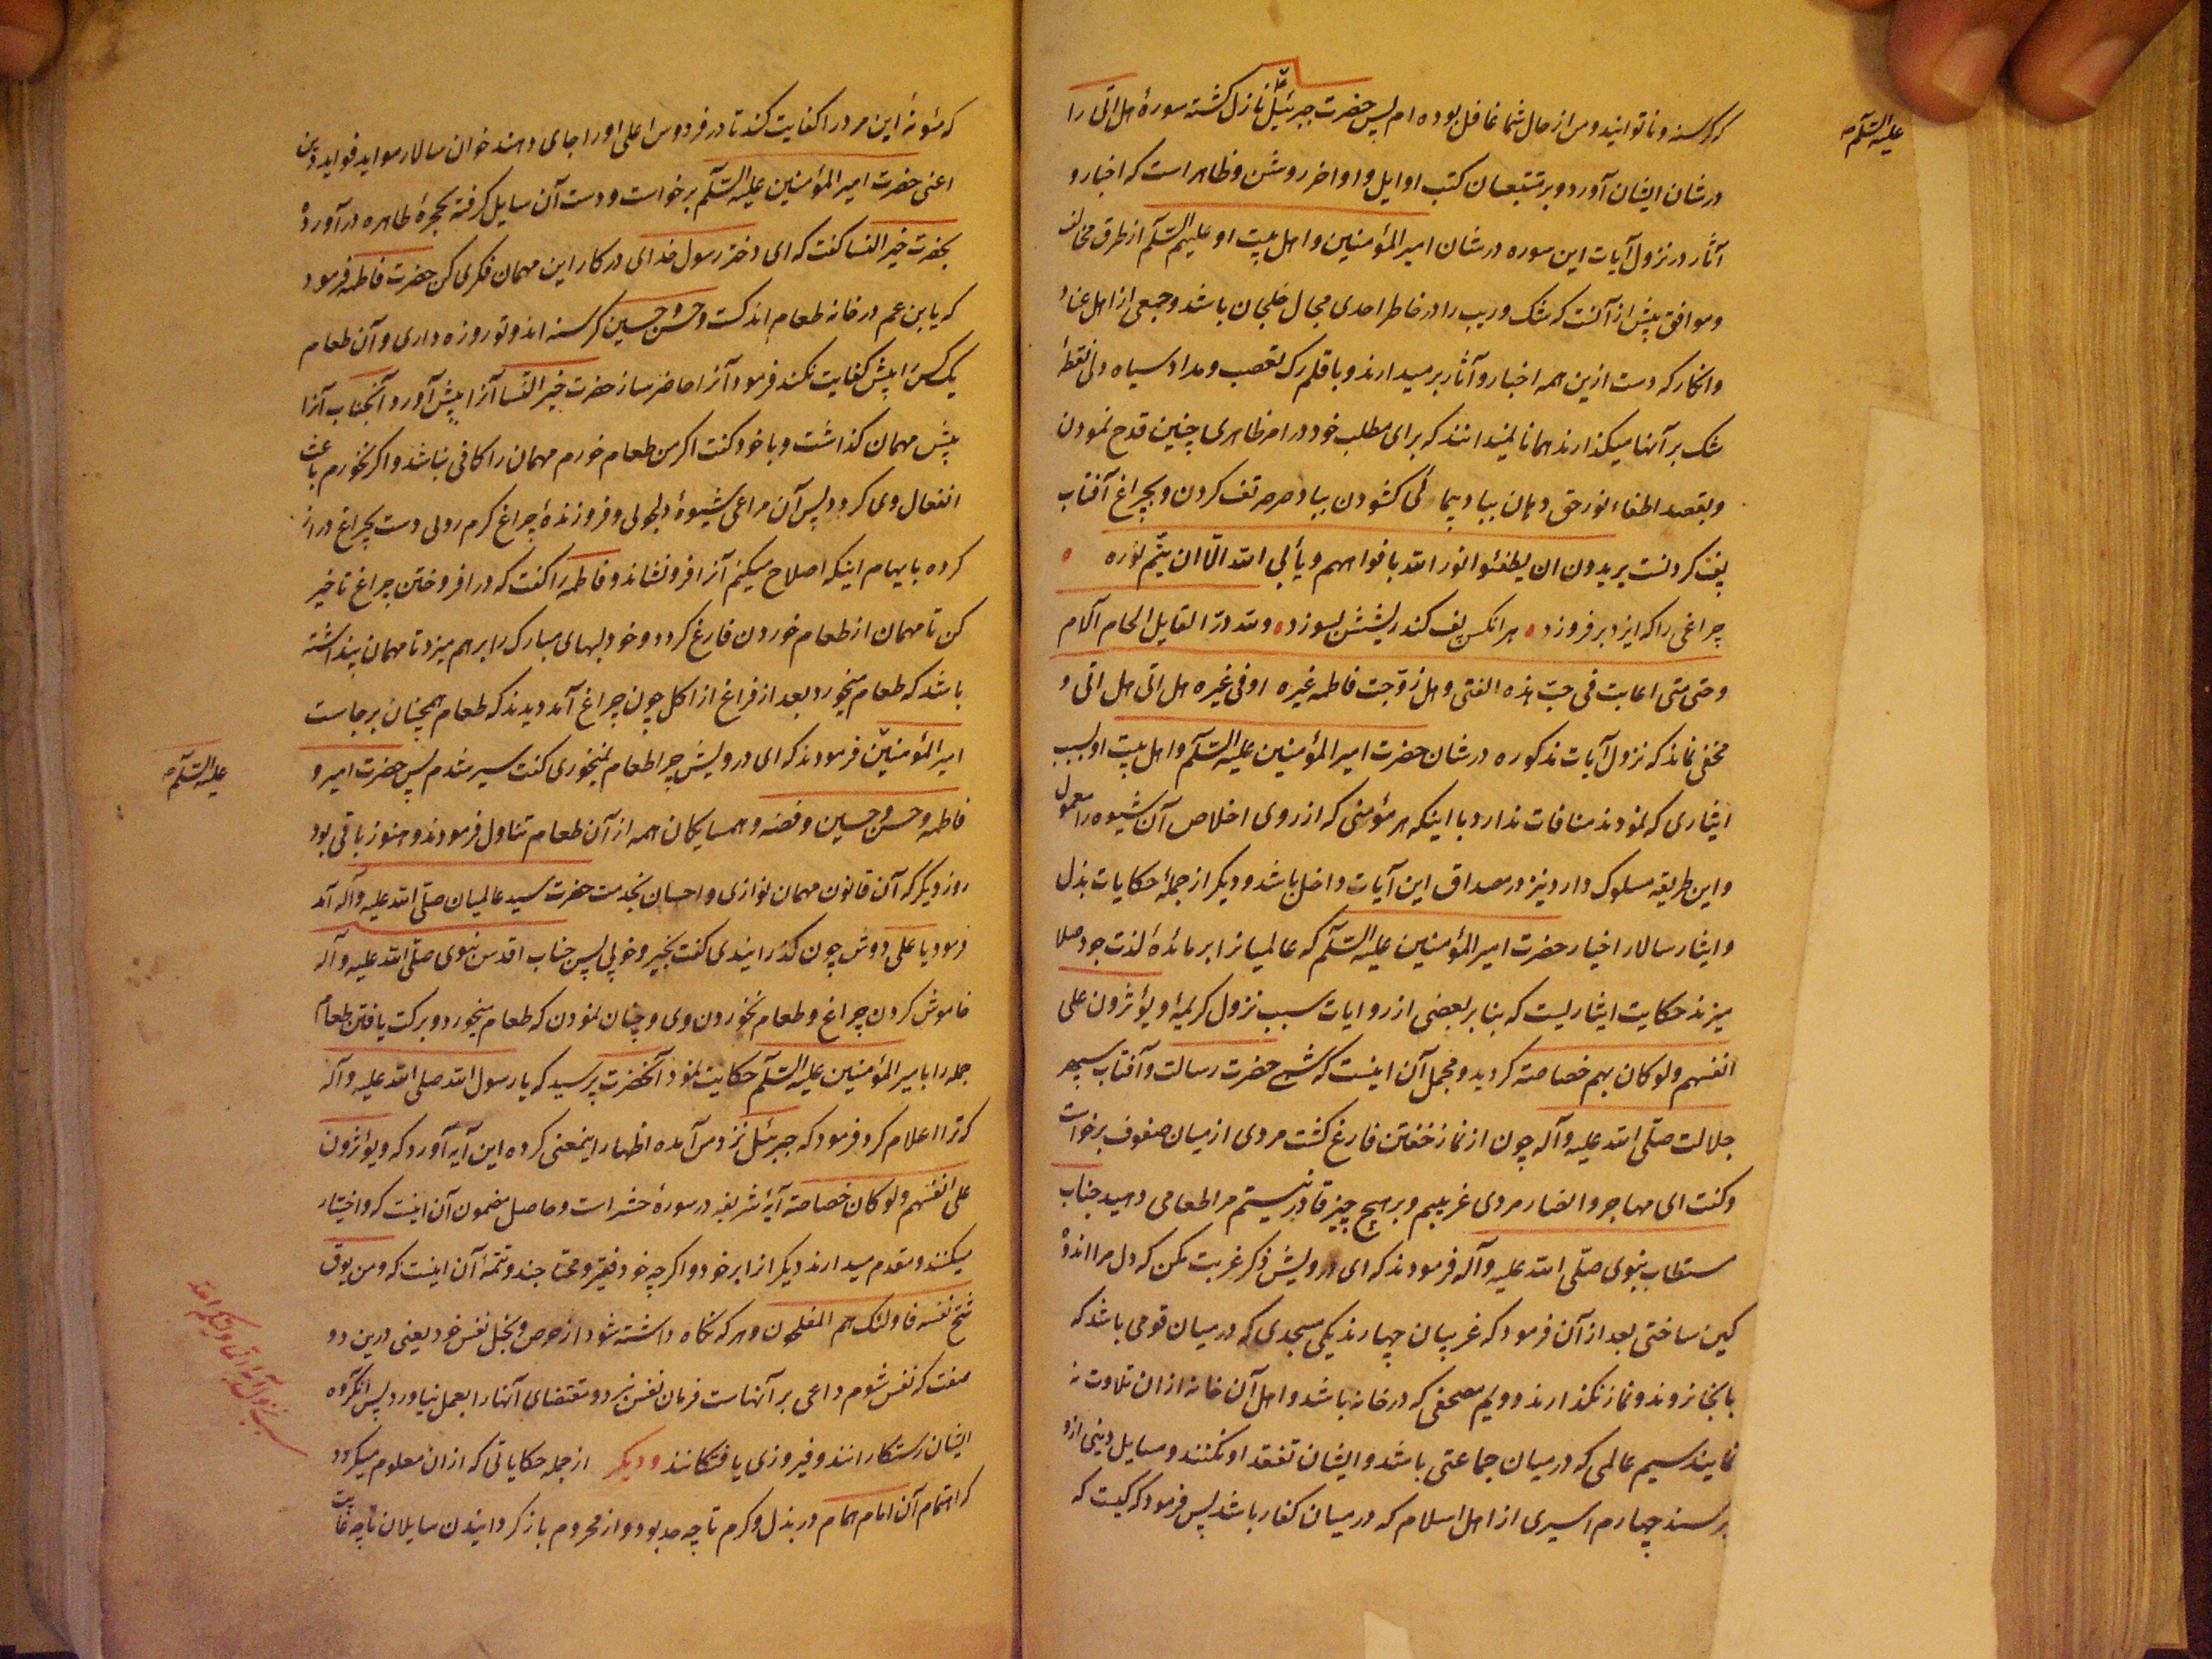 گرسنه و ناتوانید و من از حال شما غافل بوده‌ام پس حضرت جبرئیل نازل گشته سورهٔ هل اتی را
علیه السلام
در شان ایشان آورد و بر متتبعان کتب اوایل و اواخر روشن و ظاهر است که اخبار و
آثار در نزول آیات این سوره در شان امیر المؤمنین و اهل بیت او علیهم السلام از طرق مخالف
و موافق بیش از آنست که شک و ریب را در خاطر احدی مجال خلجان باشد و جمعی از اهل عناد
و انکار که دست ازین همه اخبار و آثار بر میدارند و با قلم رک تعصب و مداد سیاه دلی نقطهٔ
شک بر آنها میگذارند همانا نمیدانند که برای مطلب خود در امر ظاهری چنین قدح نمودن
و بقصد اطفاء نور حق دهان بباد پیمائی کشودن بباد صرصر تف کردن و بچراغ آفتاب
پف کردنست یریدون ان یطفئوا نور الله بافواههم و یأبی الله الّا ان یتمّ نوره
چراغی را که ایزد بر فروزد هر انکس پف کند ریشش بسوزد و لله درّ القایل الحام الام
و حتی متی اعاتب فی حبّ هذه الفتی و هل زوّجت فاطمه غیره او فی غیره هل اتی هل اتی و
مخفی نماند که نزول آیات مذکوره در شان حضرت امیر المؤمنین علیه السلام و اهل بیت او بسبب
ایثاری که نمودند منافات ندارد با اینکه هر مؤمنی که از روی اخلاص آن شیوه را معمول
و این طریقه مسلوک دارد نیز در مصداق این آیات داخل باشد و دیگر از جملهٔ حکایات بذل
و ایثار سالار اخیار حضرت امیر المؤمنین علیه السلام که عالمیانرا بر مائدهٔ لذت جود صلا
میزند حکایت ایثاریست که بنابر بعضی از روایات سبب نزول کریمهٔ و یؤثرون علی
انفسهم و لو کان بهم خصاصة گردید و مجمل آن اینست که شبی حضرت رسالت و آفتاب سپهر
جلالت صلّی الله علیه و آله چون از نماز خفتن فارغ گشت مردی از میان صفوف برخواست
و گفت ای مهاجر و انصار مردی غریبم و بر هیچ چیز قادر نیستم مرا طعامی دهید جناب
مستطاب نبوی صلّی الله علیه و آله فرمودند که ای درویش ذکر غربت مکن که دل مرا اندوه
کین ساختی بعد از آن فرمود که غریبان چهارند یکی مسجدی که در میان قومی باشد که
بانجا نروند و نماز نکذارند دویم مصحفی که در خانه باشد و اهل آن خانه ازان تلاوت نه
نمایند سیم عالمی که در میان جماعتی باشد و ایشان تفقد او نکنند و مسایل دینی ازو
نپرسند چهارم اسیری از اهل اسلام که در میان کفار باشد پس فرمود که کیست که
که مئونهٔ این مرد را کفایت کند تا در فردوس اعلی او را جای دهند خوان سالار مواید فواید دین
اعنی حضرت امیر المؤمنین علیه السلام برخواست و دست آن سایل گرفته بحجرهٔ طاهره در آورد
بحضرت خیر النسا گفت که ای دختر رسول خدای در کار این مهمان فکری کن حضرت فاطمه فرمود
که یا بن عم در خانه طعام اندکست و حسن و حسین گرسنه اند و تو روزه داری و آن طعام
یک کس را بیش کفایت نکند فرمود آنرا حاضر ساز حضرت خیر النسا آنرا پیش آورد آنجناب آنرا
پیش مهمان گذاشت و با خود گفت اگر من طعام خورم مهمان را کافی نباشد و اگر نخورم باعث
انفعال وی گردد پس آن مراعی شیوهٔ دلجوئی و فروزندهٔ چراغ کرم رو دست بچراغ دراز
کرده بایهام اینکه اصلاح میکنم آنرا فرونشاند و فاطمه را گفت که در افروختن چراغ تاخیر
کن تا مهمان از طعام خوردن فارغ گردد و خود لبهای مبارک را بر هم میزد تا مهمان پنداشته
باشد که طعام میخورد بعد از فراغ از اکل چون چراغ آمد دیدند که طعام همچنان برجاست
امیر المؤمنین فرمودند که ای درویش چرا طعام نمیخوری گفت سیر شدم پس حضرت امیر و
علیه السلام
فاطمه و حسن و حسین و فضه و همسایکان همه از آن طعام تناول فرمودند و هنوز باقی بود
روز دیگر که آن قانون مهمان نوازی و احسان بخدمت حضرت سید عالمیان صلّی الله علیه و آله آمد
فرمود یا علی دوش چون گذرانیدی گفت بخیر و خوبی پس جناب اقدس نبوی صلّی الله علیه و آله
خاموش کردن چراغ و طعام نخوردن وی و چنان نمودن که طعام میخورد و برکت یافتن طعام
جمله را بامیر المؤمنین علیه السلام حکایت نمود آنحضرت پرسید که یا رسول الله صلی الله علیه و آله
که ترا اعلام کرد فرمود که جبرئیل نزد من آمده اظهار اینمعنی کرده این آیه آورد که و یؤثرون
علی انفسهم و لو کان خصاصة آیهٔ شریفه در سورهٔ حشر است و حاصل مضمون آن اینست که و اختیار
میکنند و مقدم میدارند دیگرانرا بر خود و اگر چه خود فقیر و محتاجند و تتمهٔ آن اینست که و من یوق
شحّ نفسه فاولئک هم المفلحون و هر که نگاه داشته شود از حرص و بخل نفس خود یعنی درین دو
صفت که نفس شوم داعی بر آنهاست فرمان نفس نبرد و مقتضای آنها را بعمل نیاورد پس انگروه
ایشان رستکارانند و فیروزی یافتکانند و دیگر از جمله حکایاتی که ازان معلوم میگردد
که اهتمام آن امام همام در بذل و کرم تا چه حد بود و از محروم باز گردانیدن سایلان تا چه غایت
سبب نزول آیهٔ انما ولیکم الله